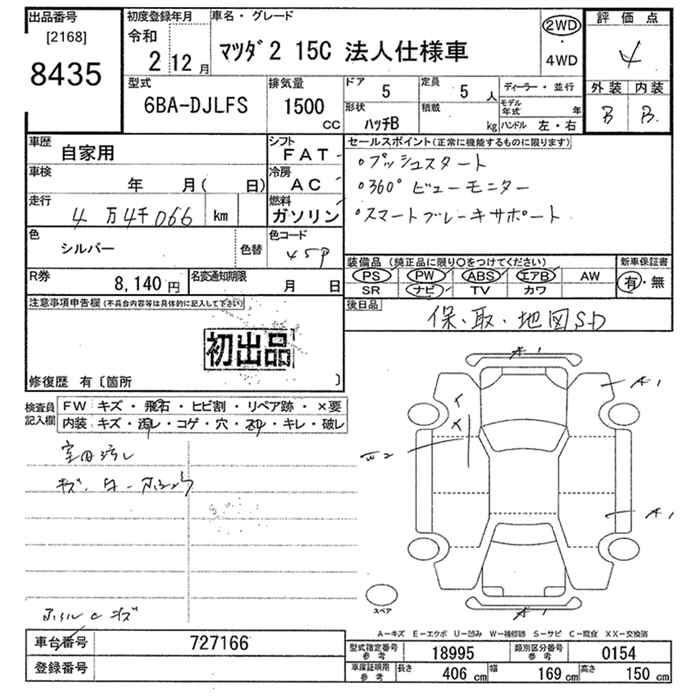 出品番号
[2168]
8435
初度登録年月
令和
2 12月
車名・グレード
マツダ2 15C 法人仕様車
2WD
・
4WD
評価点
4
外装 内装
B B
型式
6BA-DJLFS
排気量
1500
CC
ドア
5
定員
5 人
形状
ハッチB
積載
kg
ディーラー・並行
モデル年式 年
ハンドル 左・右
車歴
自家用
シフト
FAT
車検
年 月( 日)
冷房
AC
走行
4万4千066 km
燃料
ガソリン
色
シルバー
色替
色コード
45P
R券
8,140円
名変通知期限
月 日
セールスポイント(正常に機能するものに限ります)
○プッシュスタート
○360°ビューモニター
○スマートブレーキサポート
装備品(純正品に限り○をつけてください)
PS PW ABS エアB AW
SR ナビ TV カワ
新車保証書
有・無
後日品
保・取・地図SD
注意事項申告欄(不具合内容等は具体的に記入して下さい)
初出品
修復歴 有〔箇所 〕
検査員記入欄
FW キズ・飛石・ヒビ割・リペア跡・×要
内装 キズ・汚レ・コゲ・穴・キレ・破レ
室内汚レ
ホイルcキズ
A1
A1
A1
スペア
A-キズ E-エクボ U-凹み W-補修跡 S-サビ C-腐食 XX-交換済
車台番号
727166
登録番号
型式指定番号 参考
18995
類別区分番号 参考
0154
車庫証明用 参考
長さ 406 cm
幅 169 cm
高さ 150 cm